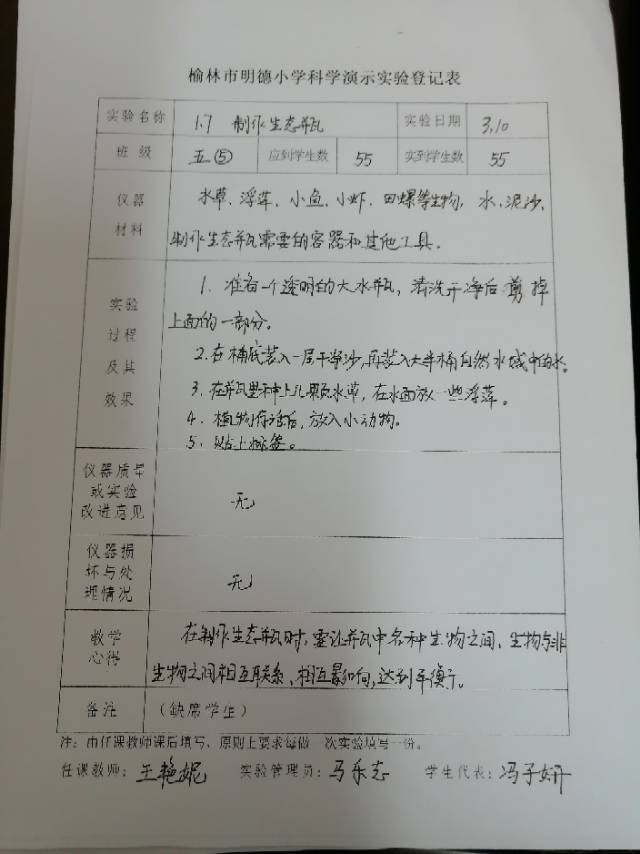 榆林市明德小学科学演示实验登记表
实验名称 1.7 制作生态瓶 实验日期 3.10
班级 五⑤ 应到学生数 55 实到学生数 55
仪器材料 水草、浮萍、小鱼、小虾、田螺等生物，水、泥沙、
制作生态瓶需要的容器和其他工具。
实验过程及其效果 1. 准备一个透明的大水瓶，清洗干净后剪掉
上面的一部分。
2. 在桶底装入一层干净沙，再装入大半桶自然水域中的水。
3. 在瓶里种上几颗水草，在水面放一些浮萍。
4. 植物存活后，放入小动物。
5. 贴上标签。
仪器质量或实验改进意见 无
仪器损坏与处理情况 无
教学心得 在制作生态瓶时，要让瓶中各种生物之间、生物与非
生物之间相互联系、相互影响，达到平衡。
备注 （缺席学生）
注：由任课教师课后填写、原则上要求每做一次实验填写一份。
任课教师：王艳妮 实验管理员：马乐志 学生代表：冯子妍